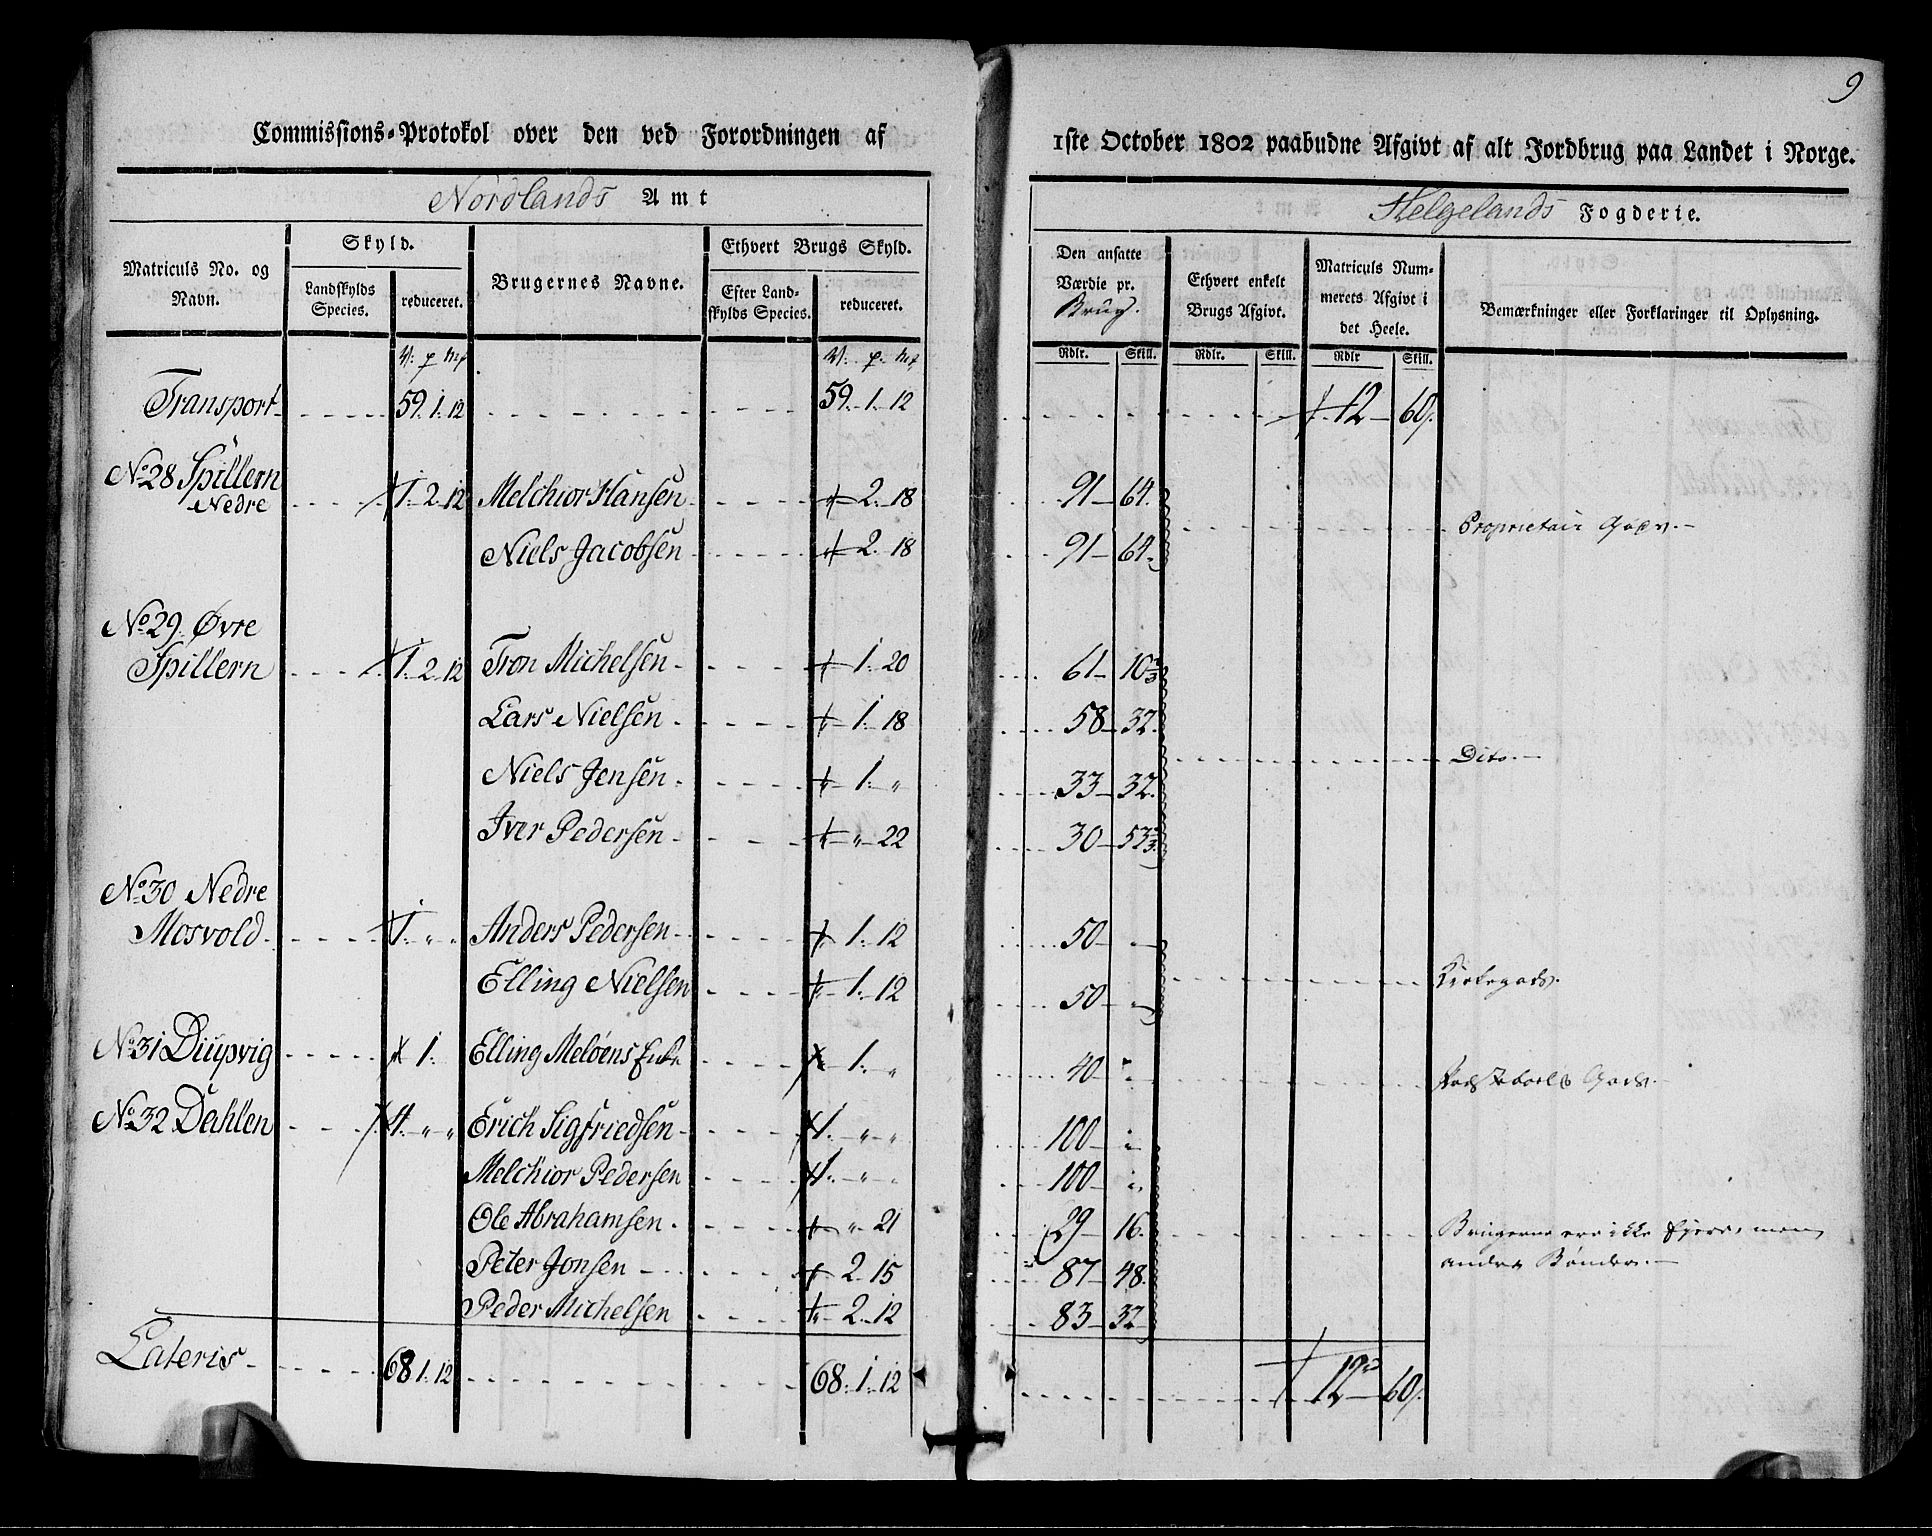 9
Commissions-Protokol over den ved Forordningen af 1ste October 1802 paabudne Afgivt af alt Jordbrug paa Landet i Norge.
Nordlands Amt Helgelands Fogderie.
Matriculs No. og Navn. Skyld. Landskylds Species. reduceret. Brugernes Navne. Ethvert Brugs Skyld. Efter Landskylds Species. reduceret. Den ansatte Værdie pr. Brug. Ethvert enkelt Brugs Afgivt. Matriculs Nummerets Afgivt i det Heele. Bemærkninger eller Forklaringer til Oplysning.
V. p. mk V. p. mk Rdlr. Skill. Rdlr. Skill. Rdlr Skill.
Transport 59. 1. 12 59. 1. 12 12 60.
No 28 Spillern
Nedre 1. 2. 12 Melchior Hansen 2. 18 91 64.
Proprietair
Niels Jacobsen 2. 18 91 64.
No 29. Øvre
Spillern 1. 2. 12 Tron Michelsen 1. 20 61 10 2/3
Lars Nielsen 1. 18 58 32.
Dito.
Niels Jensen 1. " 33 32.
Iver Pedersen " 22 30 53 1/3
No 30 Nedre
Mosvold 1. " " Anders Pedersen 1. 12 50 "
Elling Nielsen 1. 12 50 " Kirkegods.
No 31 Diupvig 1. Elling Meløens Enke 1. " 40 " Gods.
No 32 Dahlen 4. " " Erich Sigfriedsen 1. " " 100 "
Melchior Pedersen 1. " " 100 "
Ole Abrahamsen " 21 29 16. Brugerne ere ikke Eyere, men
Peter Jonsen 2. 15 87 48. andre Bønder.
Peder Michelsen 2. 12 83 32
Lateris 68 1. 12 68. 1. 12 12 60.